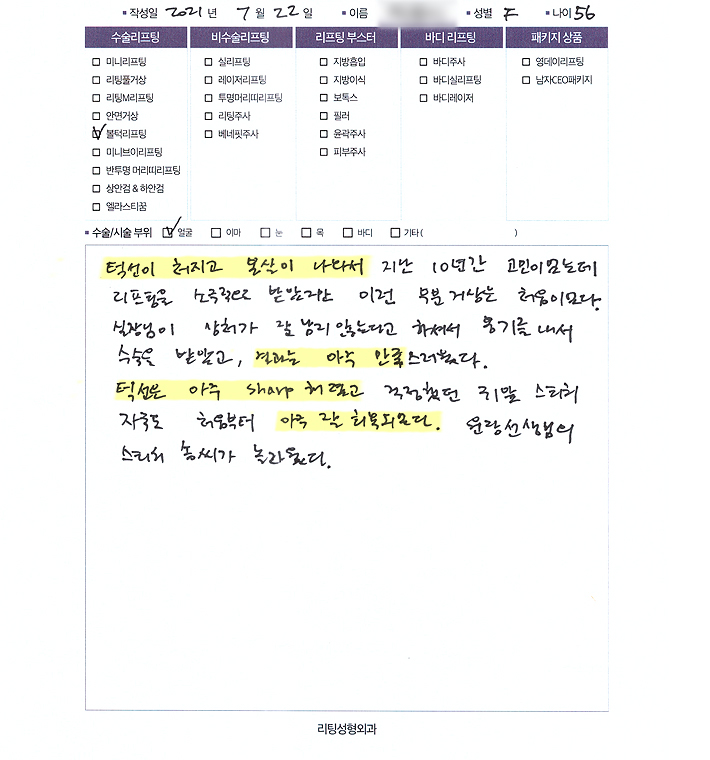 작성일 2021 년 7 월 22 일 이름 성별 F 나이 56
수술리프팅 비수술리프팅 리프팅 부스터 바디 리프팅 패키지 상품
미니리프팅 실리프팅 지방흡입 바디주사 영데이리프팅
리팅풀거상 레이저리프팅 지방이식 바디실리프팅 남자CEO패키지
리팅M리프팅 투명머리띠리프팅 보톡스 바디레이저
안면거상 리팅주사 필러
볼턱리프팅 베네핏주사 윤곽주사
미니브이리프팅 피부주사
반투명 머리띠리프팅
상안검 & 하안검
엘라스티꿈
수술/시술 부위 얼굴 이마 눈 목 바디 기타( )
턱선이 쳐지고 볼살이 나와서 지난 10년간 고민이었는데
리프팅을 소극적으로 받았지만 이런 부분 거상은 처음이었다.
실장님이 상처가 잘 남지 않는다고 하셔서 용기를 내서
수술을 받았고, 결과는 아주 만족스러웠다.
턱선은 아주 sharp 해졌고 걱정했던 귀밑 스티치
자국도 처음부터 아주 잘 회복되었다. 선생님의
스티치 솜씨가 놀라웠다.
리팅성형외과